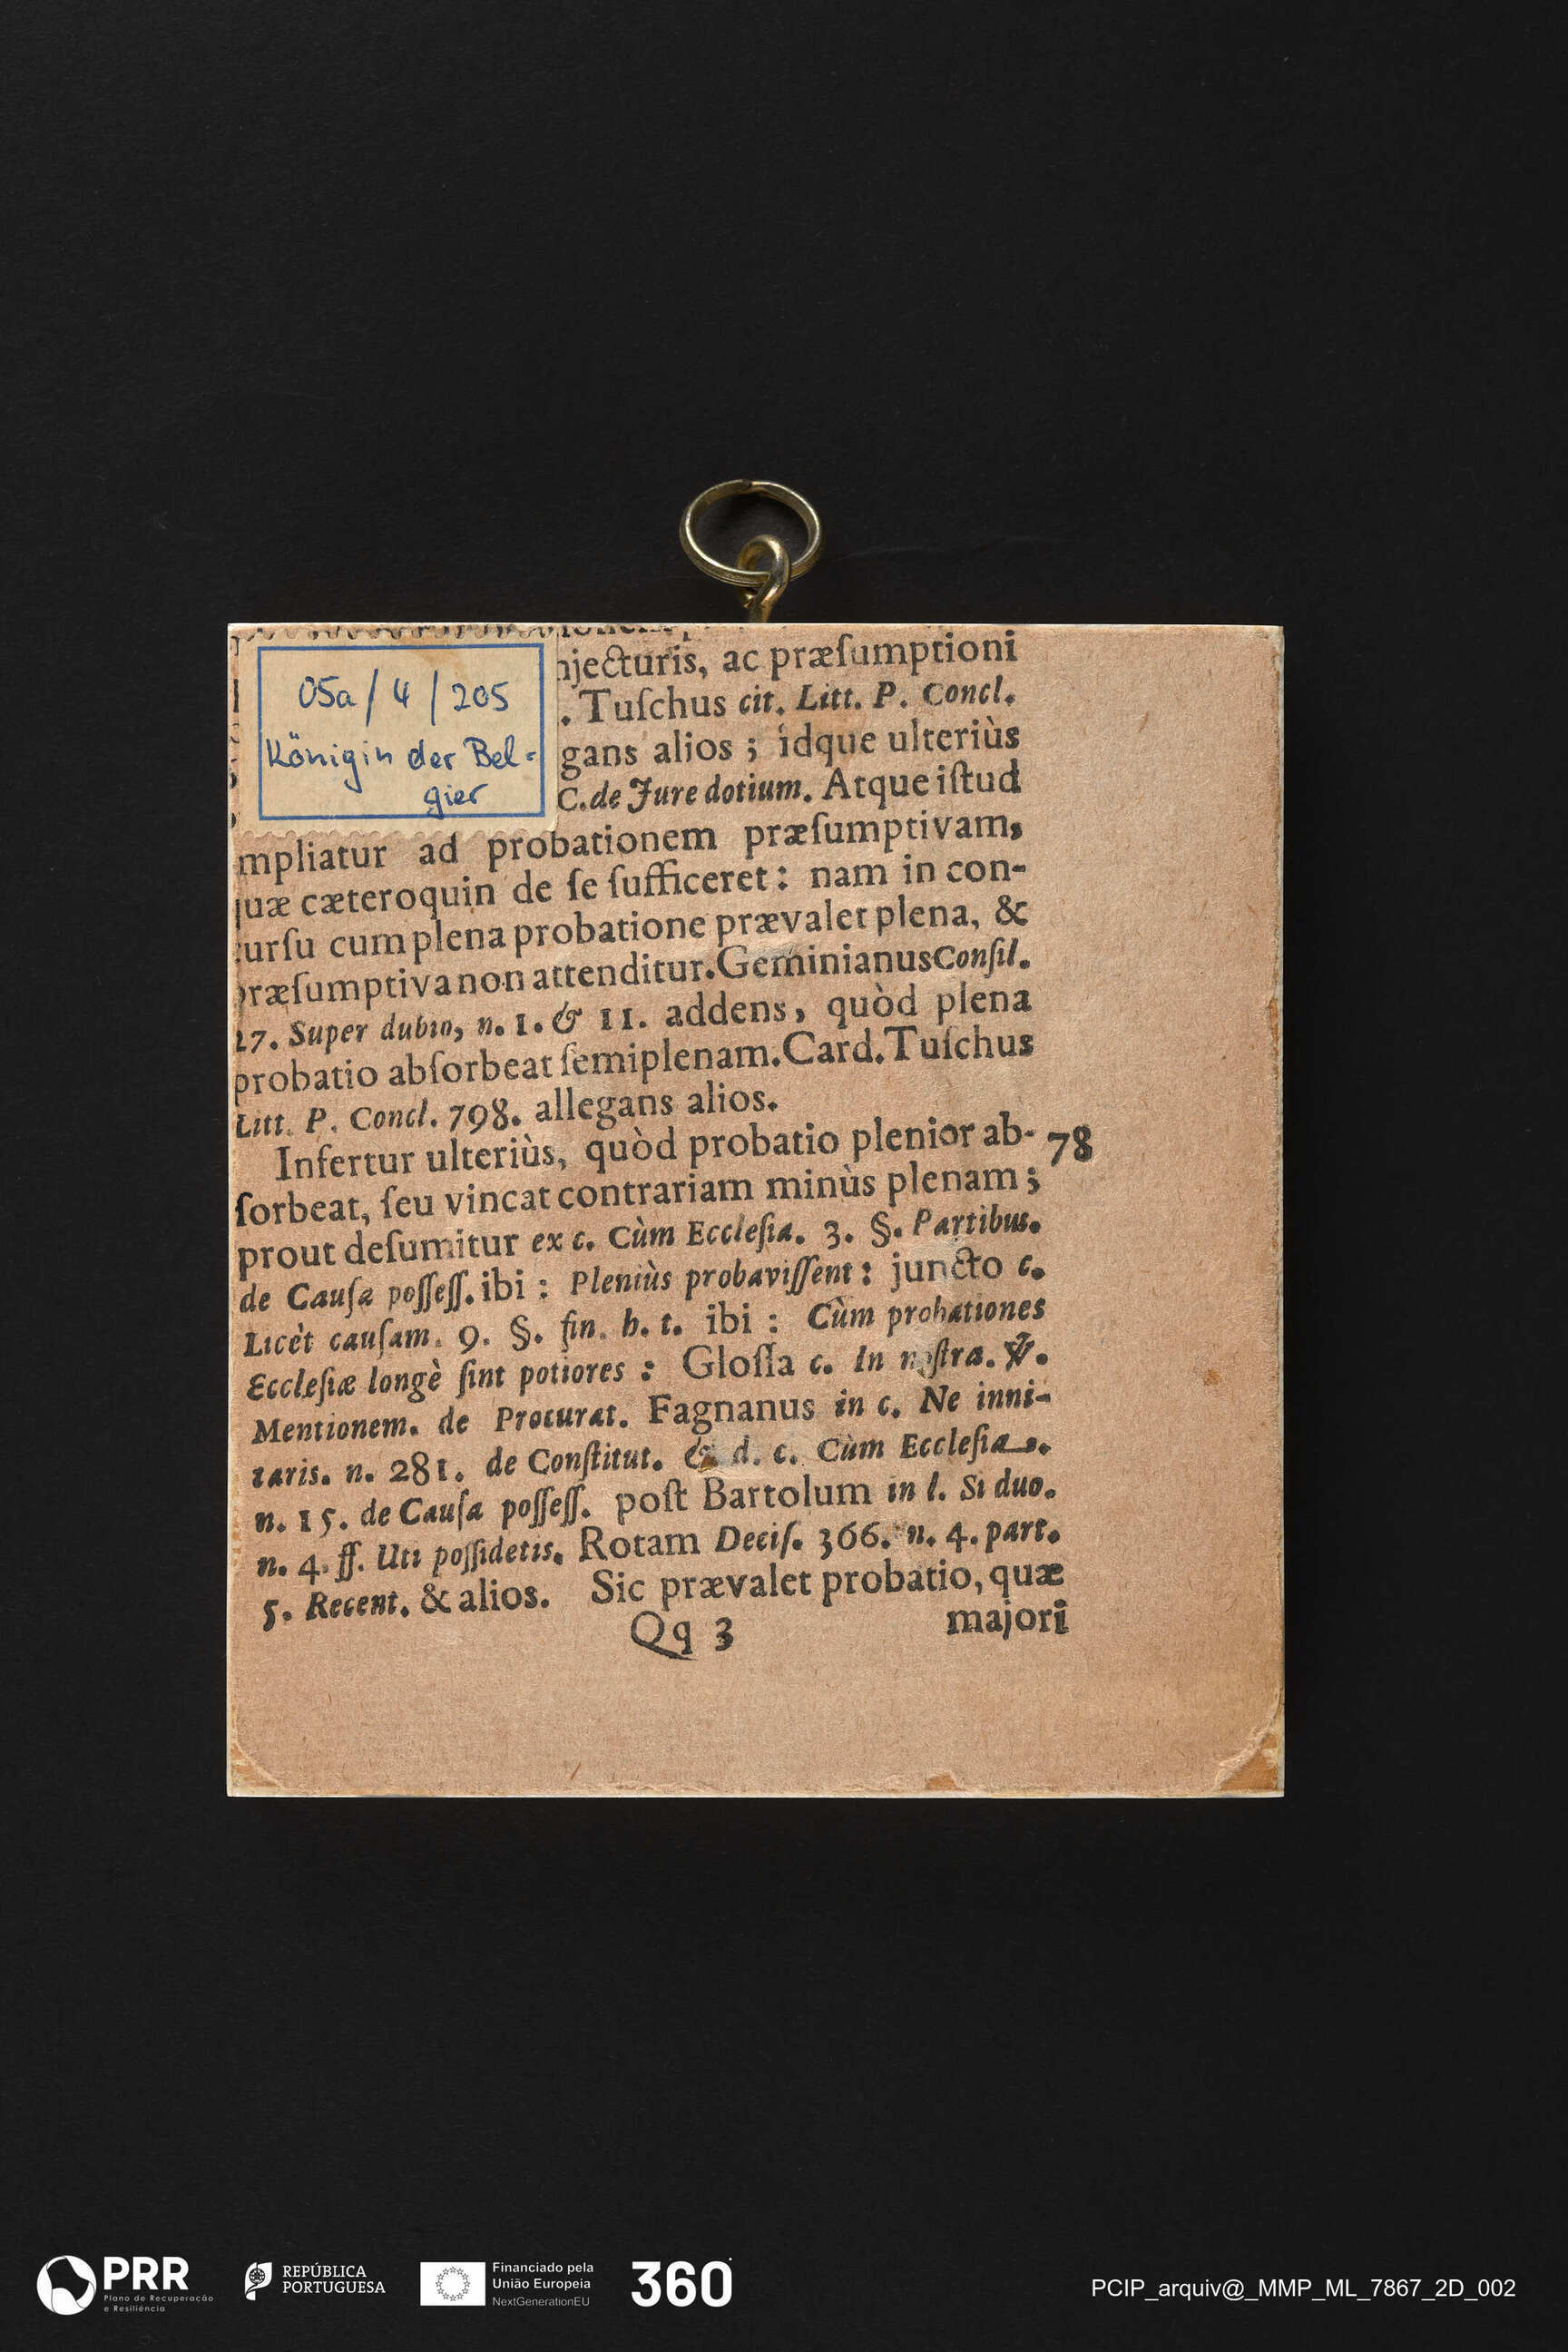 05a / 4 / 205
Königin der Bel-
gier
njecturis, ac præſumptioni
. Tuſchus cit. Litt. P. Concl.
gans alios ; idque ulteriùs
C. de Jure dotium. Atque iſtud
mpliatur ad probationem præſumptivam,
quæ cæteroquin de ſe ſufficeret : nam in con-
curſu cum plena probatione prævalet plena, &
præſumptiva non attenditur. Geminianus Conſil.
27. Super dubio, n. 1. & 11. addens, quòd plena
probatio abſorbeat ſemiplenam. Card. Tuſchus
Litt. P. Concl. 798. allegans alios.
Infertur ulteriùs, quòd probatio plenior ab- 78
ſorbeat, ſeu vincat contrariam minùs plenam ;
prout deſumitur ex c. Cùm Eccleſia. 3. §. Partibus.
de Cauſa poſſeſſ. ibi : Pleniùs probaviſſent : juncto c.
Licèt cauſam. 9. §. fin. h. t. ibi : Cùm probationes
Eccleſiæ longè ſint potiores : Gloſſa c. In noſtra. ℣.
Mentionem. de Procurat. Fagnanus in c. Ne inni-
taris. n. 281. de Conſtitut. & d. c. Cùm Eccleſia.
n. 15. de Cauſa poſſeſſ. poſt Bartolum in l. Si duo.
n. 4. ff. Uti poſſidetis. Rotam Deciſ. 366. n. 4. part.
5. Recent. & alios. Sic prævalet probatio, quæ
Qq 3 majori
PRR
Plano de Recuperação
e Resiliência
REPÚBLICA
PORTUGUESA
Financiado pela
União Europeia
NextGenerationEU
360
PCIP_arquiv@_MMP_ML_7867_2D_002